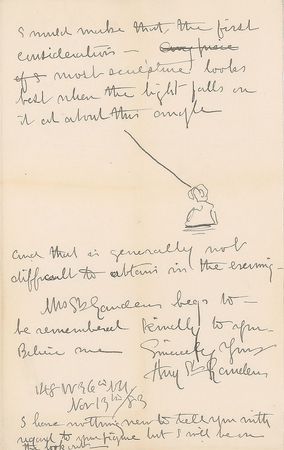 I would make that, the first
consideration —
most sculpture looks
best when the light falls on
it at about this angle
and that is generally not
difficult to obtain in the evening —
Mrs St Gaudens begs to
be remembered kindly to you
Believe me Sincerely Yours
Aug St Gaudens
Nov 13th / 83
I have nothing new to tell you with
regard to your figure but I will be on
the look out